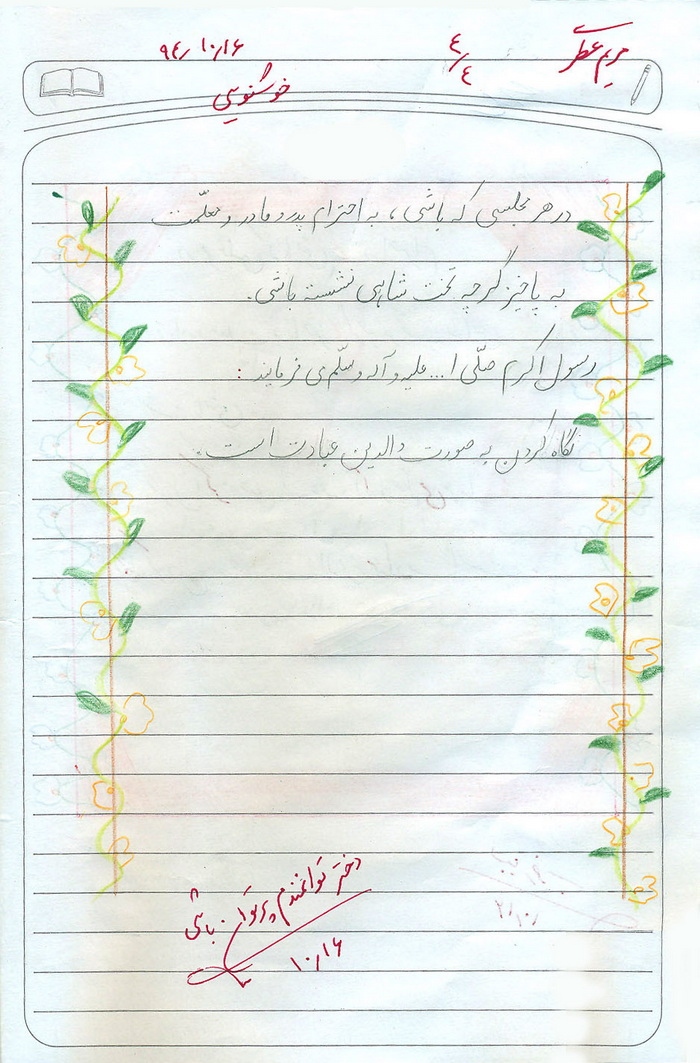 مریم عطری
۴/۴
۹۴/۱۰/۱۶
خوشنویسی
در هر مجلسی که باشی، به احترام پدر و مادر و معلّمت
به پاخیز گرچه تخت شاهی نشسته باشی.
رسول اکرم صلّی ا... علیه و آله و سلّم می فرمایند :
نگاه کردن به صورت والدین عبادت است.
دختر توانمندم پرتوان باشی
۱۰/۱۶